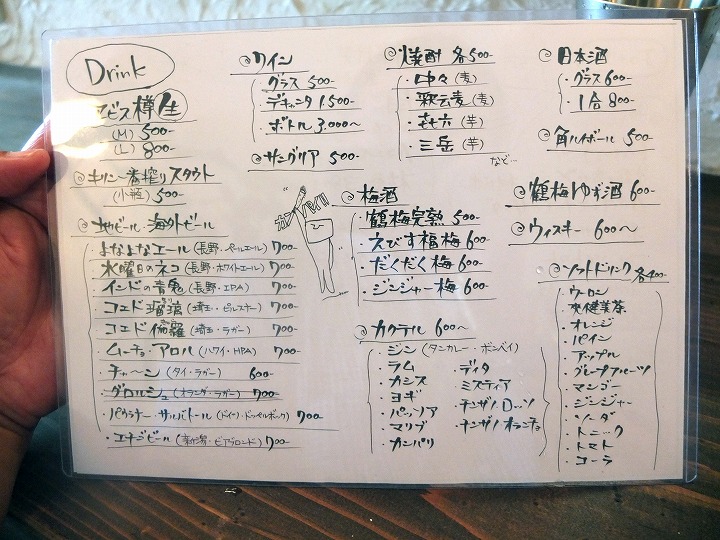 Drink
ヱビス樽生
(M) 500-
(L) 800-
◎キリン一番搾りスタウト
(小瓶) 500-
◎地ビール・海外ビール
・よなよなエール(長野・ペールエール) 700-
・水曜日のネコ(長野・ホワイトエール) 700-
・インドの青鬼(長野・IPA) 700-
・コエド瑠璃(埼玉・ピルスナー) 700-
・コエド伽羅(埼玉・ラガー) 700-
・ムーチョ・アロハ(ハワイ・HPA) 700-
・チャーン(タイ・ラガー) 600-
・グロルシュ(オランダ・ラガー) 700-
・パウラナー・サルバトール(ドイツ・ドッペルボック) 700-
・エチゴビール(新潟・ビアブロンド) 700-
◎ワイン
・グラス 500-
・デキャンタ 1,500-
・ボトル 3,000〜
◎サングリア 500-
◎焼酎 各500-
・中々(麦)
・釈云麦(麦)
・㐂六(芋)
・三岳(芋)
など…
◎梅酒
・鶴梅完熟 500-
・えびす福梅 600-
・だくだく梅 600-
・ジンジャー梅 600-
◎カクテル 600〜
・ジン(タンカレー・ボンベイ)
・ラム
・カシス
・ヨギ
・パッソア
・マリブ
・カンパリ
・ディタ
・ミスティア
・チンザノ・ロッソ
・チンザノ・オランチョ
◎日本酒
・グラス 600-
・1合 800-
◎角ハイボール 500-
◎鶴梅ゆず酒 600-
◎ウィスキー 600〜
◎ソフトドリンク 各400-
・ウーロン
・爽健美茶
・オレンジ
・パイン
・アップル
・グレープフルーツ
・マンゴー
・ジンジャー
・ソーダ
・トニック
・トマト
・コーラ